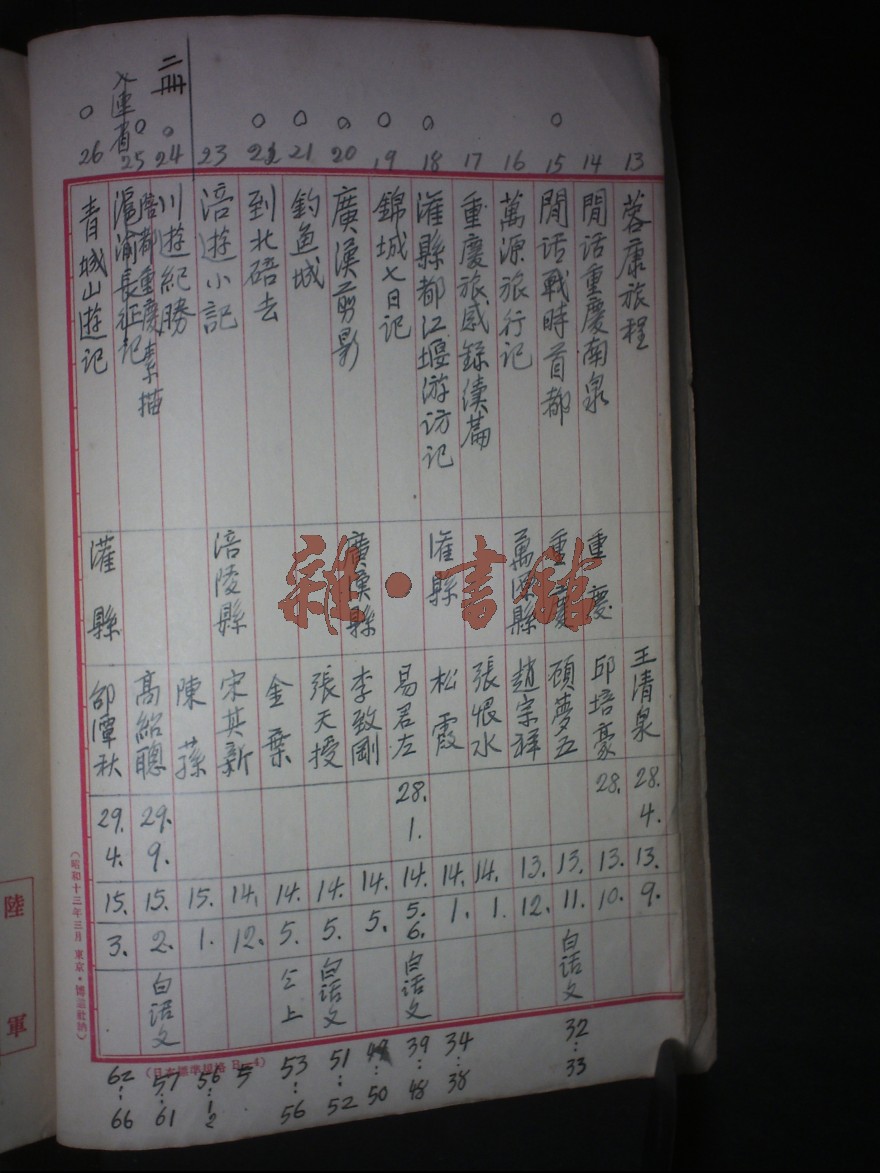 13 蓉康旅程 王清泉 28.4. 13. 9.
14 閒话重慶南泉 重慶 邱培豪 28. 13. 10.
○ 15 閒话戰時首都 重慶 顾夢五 13. 11. 白话文 32 : 33
16 萬源旅行记 萬源縣 趙宗祥 13. 12.
17 重慶旅感錄续篇 張恨水 14. 1.
○ 18 灌縣都江堰游访记 灌縣 松霞 14. 1. 34 : 38
○ 19 錦城七日记 易君左 28.1. 14. 5.6. 白话文 39 : 48
○ 20 廣漢剪影 廣漢縣 李致剛 14. 5. 49 : 50
○ 21 釣魚城 張天授 14. 5. 白话文 51 : 52
○ 22 到北碚去 金葉 14. 5. 仝上 53 : 56
23 涪遊小記 涪陵縣 宋其新 14. 12. 5
二冊 ○ 24 川遊紀勝 陳蓀 15. 1. 56
○ 25 陪都重慶素描
滬渝長征记 高紹聰 29.9. 15. 2. 白话文 57 : 61
○ 26 青城山遊记 灌縣 邵潭秋 29.4. 15. 3. 62 : 66
雜·書館
陸軍
(昭和十三年三月 東京·
(日本標準規格 B—4)